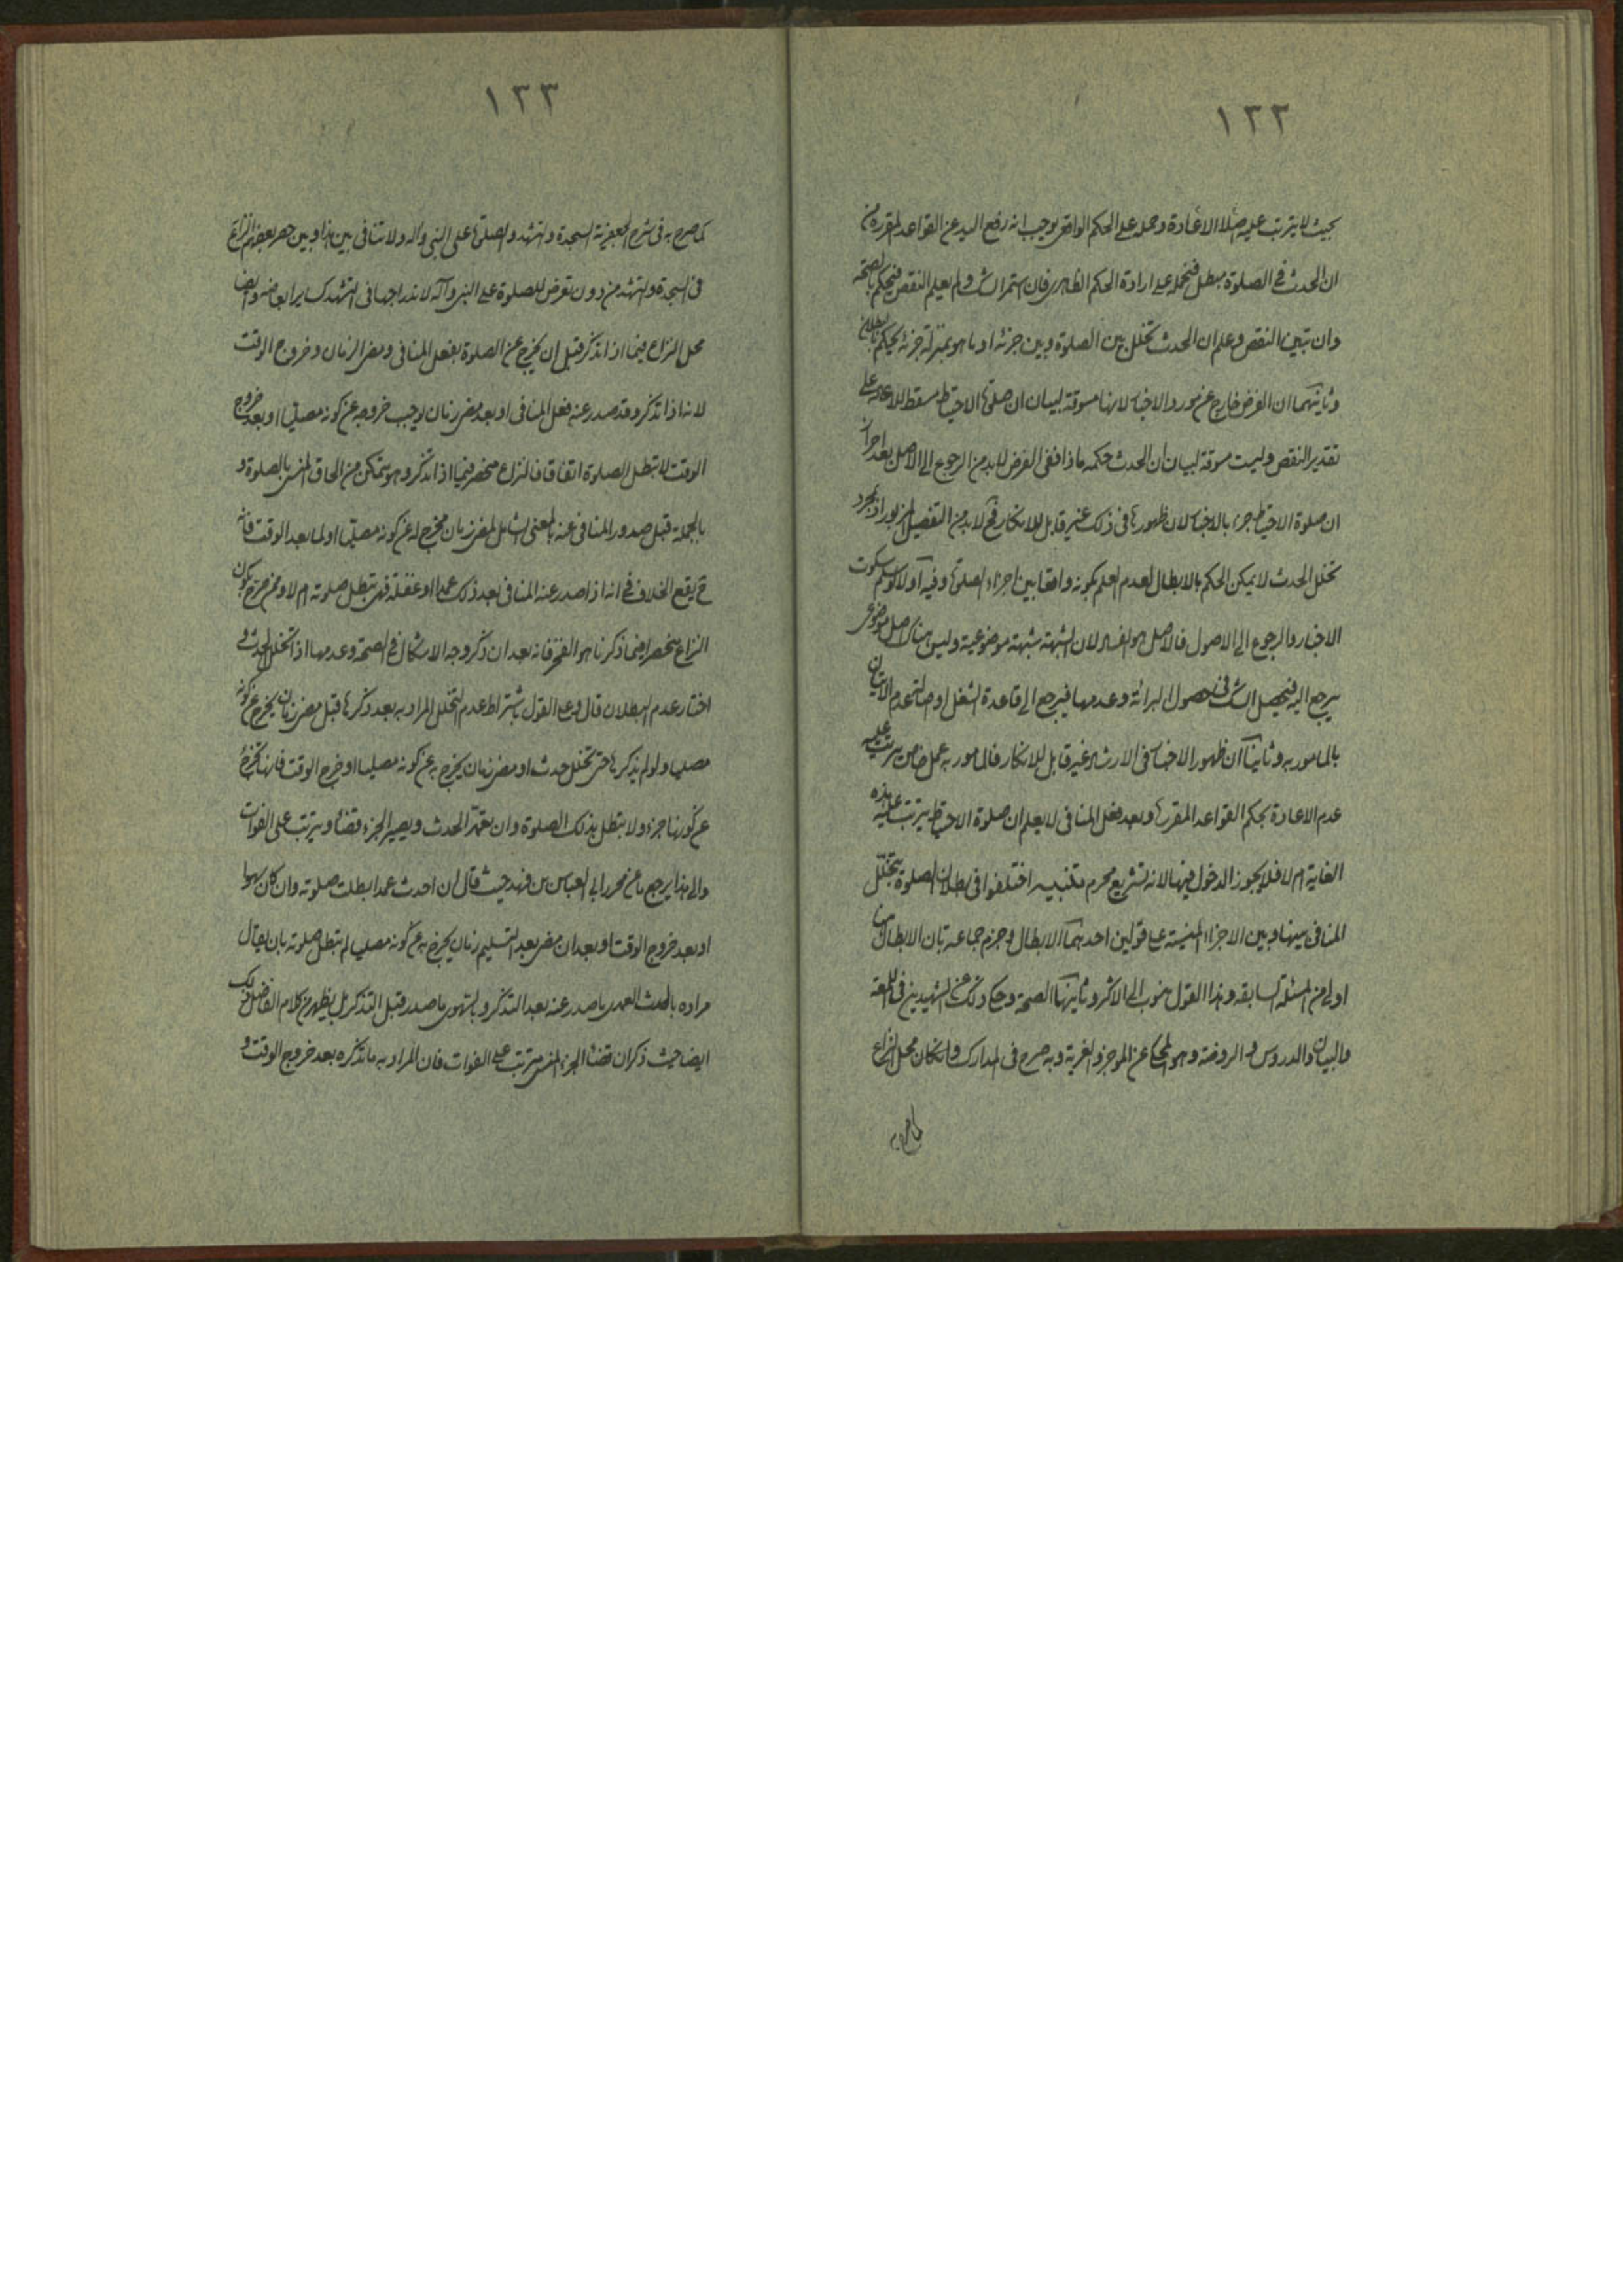 ١٢٢
بحيث لا يترتب عليه اصلا الاعادة وحمله على الحكم الواقعى يوجب انه رفع اليد عن القواعد المقررة من
ان الحدث فى الصلوة مبطل فنحمله على ارادة الحكم الظاهرى فان استمر الشك ولم يعلم النقص فيحكم بالصحة
وان تبين النقص وعلم ان الحدث تخلل بين الصلوة وبين جزئه او ما هو بمنزلة جزئه يحكم بالبطلان
وثانيهما ان الفرض خارج عن مورد الاخبار لانها مسوقة لبيان ان صلوة الاحتياط مسقط للاعادة على
تقدير النقص وليست مسوقة لبيان ان الحدث حكمه ماذا ففى الفرض لابد من الرجوع الى الاصل بعد احراز
ان صلوة الاحتياط جزء بالاخبار لان ظهورها فى ذلك غير قابل للانكار فح لابد من التفصيل المزبور اذ بمجرد
تخلل الحدث لا يمكن الحكم بالابطال لعدم العلم بكونه واقعا بين اجزاء الصلوة وفيه اولا لو سلم سكوت
الاخبار والرجوع الى الاصول فالاصل هو الفساد لان الشبهة شبهة موضوعية وليس هناك اصل موضوعى
يرجع اليه فيحصل الشك فى حصول البرائة وعدمها فيرجع الى قاعدة الشغل او اصالة عدم الاتيان
بالمامور به وثانيا ان ظهور الاخبار فى الارشاد غير قابل للانكار فالمامور به عمل خاص يترتب عليه
عدم الاعادة بحكم القواعد المقررة وبعد فعل المنافى لا يعلم ان صلوة الاحتياط يترتب عليه هذه
الغاية ام لا فلا يجوز الدخول فيها لانه تشريع محرم تنبيه اختلفوا فى بطلان الصلوة بتخلل
المنافى بينها وبين الاجزاء المنسية على قولين احدهما الابطال وجزم جماعة بان الابطال هنا
اولى من المسئلة السابقة وهذا القول منسوب الى الاكثر وثانيهما الصحة وحكى ذلك عن الشهيدين فى اللمعة
والبيان والدروس والروضة وهو المحكى عن الموجز والغرية وبه صرح فى المدارك وان كان محل النزاع
١٢٣
كما صرح به فى شرح الجعفرية السجدة والتشهد والصلوة على النبى واله ولا تنافى بين هذا وبين حصر بعضهم النزاع
فى السجدة والتشهد من دون تعرض للصلوة على النبى وآله لاندراجها فى التشهد كساير ابعاضه وايضا
محل النزاع فيما اذا تذكر قبل ان يخرج عن الصلوة بفعل المنافى ومضى الزمان وخروج الوقت
لانه اذا تذكر وقد صدر عنه فعل المنافى او بعد مضى زمان يوجب خروجه عن كونه مصليا او بعد خروج
الوقت لا تبطل الصلوة اتفاقا فالنزاع منحصر فيما اذا تذكر وهو متمكن من الحاق المنسى بالصلوة و
بالجملة قبل صدور المنافى عنه بالمعنى الشامل لمضى زمان مخرج له عن كونه مصليا او لما بعد الوقت فانه
ح يقع الخلاف فى انه اذا صدر عنه المنافى بعد ذلك عمدا او غفلة فهل تبطل صلوته ام لا وممن صرح بكون
النزاع منحصرا فيما ذكرنا هو الفخر فانه بعد ان ذكر وجه الاشكال فى الصحة وعدمها اذا تخلل الحدث و
اختار عدم البطلان قال وعلى القول باشتراط عدم التخلل المراد به بعد ذكرها قبل مضى زمان يخرج عن كونه
مصليا ولو لم يذكرها حتى تخلل حدث او مضى زمان يخرج به عن كونه مصليا او خرج الوقت فانها تخرج
عن كونها جزء ولا تبطل بذلك الصلوة وان تعمد الحدث ويصير الجزء قضاء ويترتب على الفوات
والى هذا يرجع ما عن محرر ابى العباس بن فهد حيث قال ان احدث عمدا بطلت صلوته وان كان سهوا
او بعد خروج الوقت او بعد ان مضى بعد التسليم زمان يخرج به عن كونه مصليا لم تبطل صلوته بان يقال
مراده بالحدث العمدى ما صدر عنه بعد التذكر وبالسهوى ما صدر قبل التذكر بل يظهر من كلام الفاضل ذلك
ايضا حيث ذكر ان قضاء الجزء المنسى مترتب على الفوات فان المراد به ما تذكره بعد خروج الوقت و